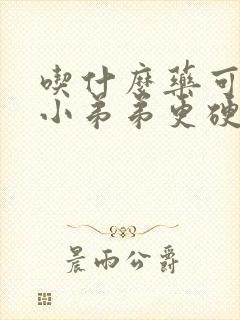 喫什麼藥可
小弟弟更硬
晨雨公爵